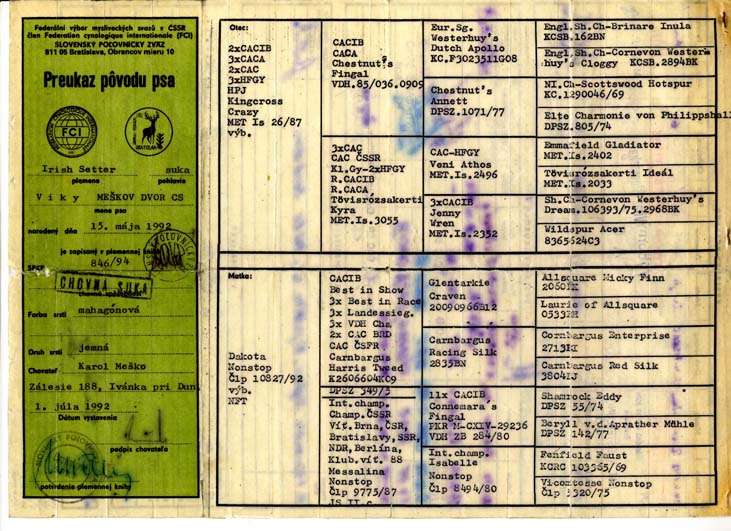 Federální výbor mysliveckých svazů v ČSSR
člen Federation cynologique internationale (FCI)
SLOVENSKÝ POĽOVNÍCKY ZVÄZ
811 05 Bratislava, Obrancov mieru 10
Preukaz pôvodu psa
FCI
BRATISLAVA
Irish Setter suka
plemeno pohlavie
Viky MEŠKOV DVOR CS
meno psa
narodený dňa 15. mája 1992
je zapísaný v plemennej
846/94
CHOVNÁ SUKA
Farba srsti mahagónová
Druh srsti jemná
Chovateľ Karol Meško
Zálesie 188, Ivánka pri Dun
1. júla 1992
Dátum vystavenia
podpis chovateľa
potvrdenie plemennej knihy
Otec:
2xCACIB
3xCACA
2xCAC
3xHFGY
HPJ
Kingcross
Crazy
MET Is 26/87
výb.
CACIB
CACA
Chestnut's
Fingal
VDH.85/036.0909
3xCAC
CAC ČSSR
Kl.Gy-2xHFGY
R.CACIB
R.CACA
Tövisrózsakerti
Kyra
MET.Is.3055
Eur.Sg.
Westerhuy's
Dutch Apollo
KC.F3023511G08
Chestnut's
Annett
DPSZ.1071/77
CAC-HFGY
Veni Athos
MET.Is.2496
3xCACIB
Jenny
Wren
MET.Is.2352
Engl.Sh.Ch-Brinare Inula
KCSB.162BN
Engl.Sh.Ch-Cornevon Wester
huy's Cloggy KCSB.2894BK
NI.Ch-Scottswood Hotspur
KC.1290046/69
Elte Charmonie von Philippshall
DPSZ.805/74
Emmafield Gladiator
MET.Is.2402
Tövisrózsakerti Ideál
MET.Is.2033
Sh.Ch-Cornevon Westerhuy's
Dream.106393/75.2968BK
Wildspur Acer
8365624C3
Matka:
Dakota
Nonstop
Člp 10827/92
výb.
NFT
CACIB
Best in Show
3x Best in Race
3x Landessieg.
3x VDH Cha
2x CAC BRD
CAC ČSFR
Carnbargus
Harris Tweed
K2606604KC9
DPSZ 349/3
Int.champ.
Champ.ČSSR
Víť.Brna,ČSR,
Bratislavy,SSR,
NDR,Berlína,
Klub.víť. 88
Messalina
Nonstop
Člp 9775/87
Glentarkie
Craven
20090966B12
Carnbargus
Racing Silk
2835BN
11x CACIB
Connemara's
Fingal
PKR M-CXIV-29236
VDH ZB 284/80
Int.champ.
Isabelle
Nonstop
Člp 8494/80
Allsquare Micky Finn
Laurie of Allsquare
Cornbargus Enterprise
Carnbargus Red Silk
Shamrock Eddy
DPSZ 55/74
Beryll v.d.Aprather Mühle
DPSZ 142/77
Fenfield Faust
KCRC 103365/69
Vicomtesse Nonstop
Člp 5320/75